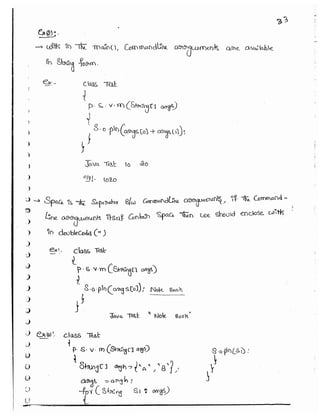 33
Case(3):-
→ with in The main(), Commandline arguments are available
in String form.
ex:- class Test
{
p. s. v. m (String[] args)
{
S.o.pln(args[0] + args[1]);
}
}
Java Test 10 20
o/p:- 1020
→ Space is the Seperator b/w Commandline arguments, if the Command-
Line argument itself Contain Space Then we should enclose with
in doublecodes (")
ex:- class Test
{
p. s. v. m (String[] args)
{
S.o.pln(args[0]); Note Book
}
}
Java Test " Note Book"
class Test
{
p. s. v. m (String[] args)
{
String[] argh = {"A", "B"};
args = argh;
for (String S1 : args)
{
S.o.pln(S1);
}
}